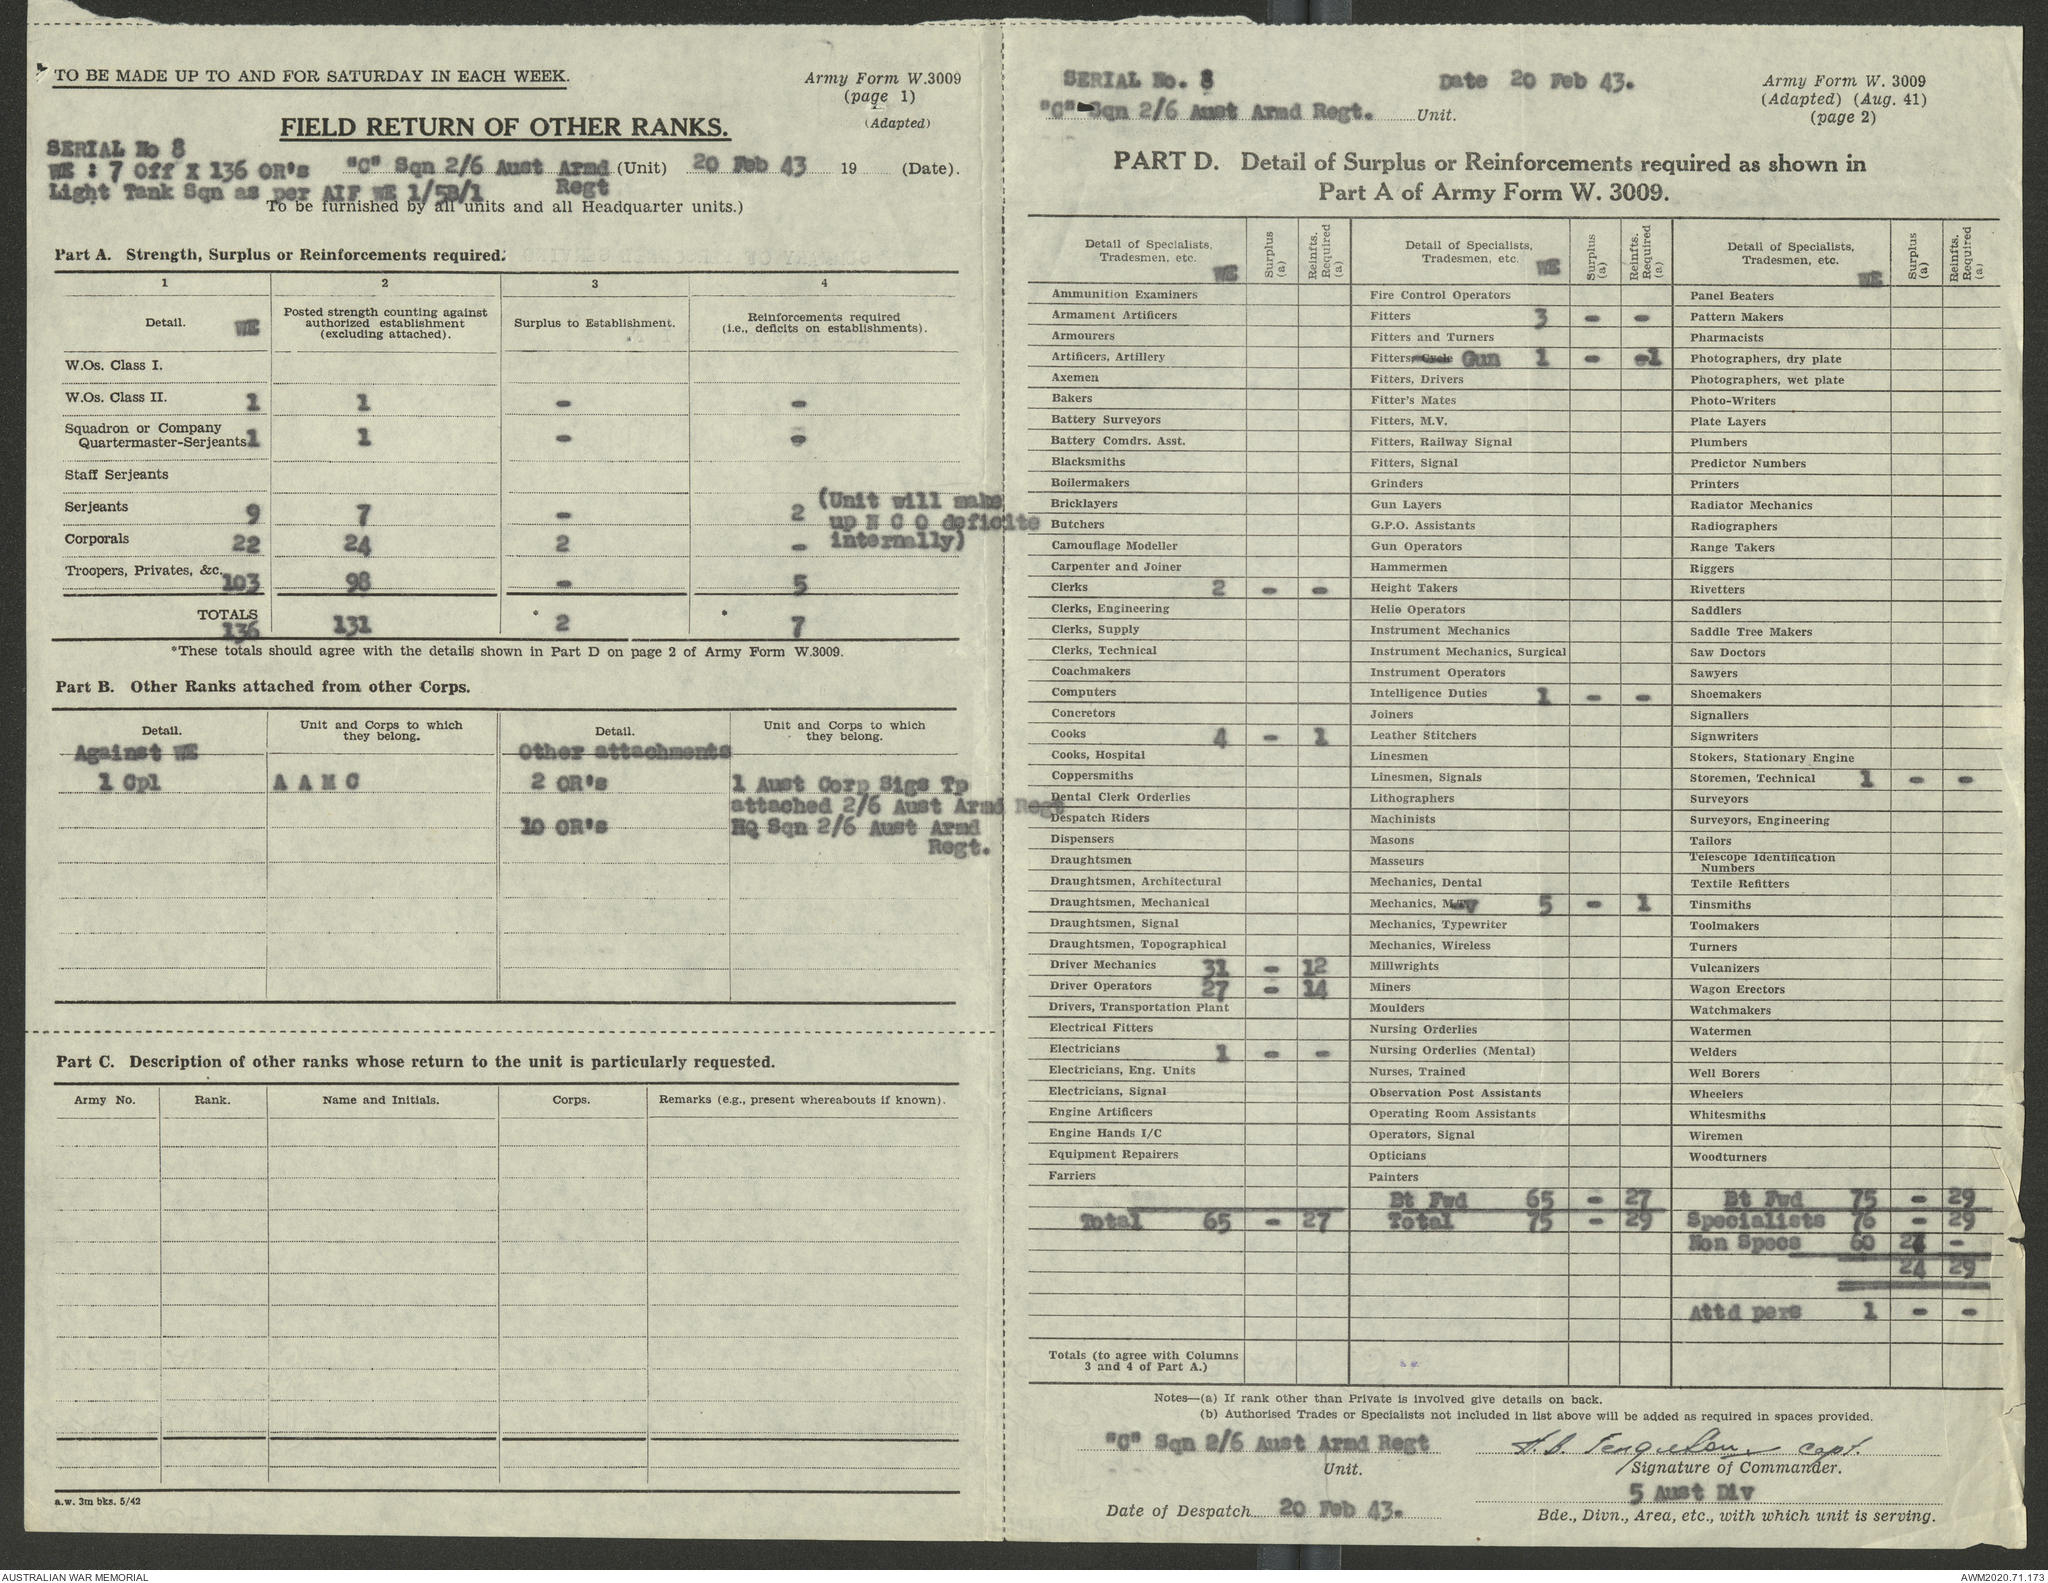 TO BE MADE UP TO AND FOR SATURDAY IN EACH WEEK.
Army Form W.3009
(page 1)
(Adapted)
FIELD RETURN OF OTHER RANKS.
SERIAL No 8
WE : 7 Off X 136 OR's "C" Sqn 2/6 Aust Armd Regt (Unit) 20 Feb 43 19 (Date).
Light Tank Sqn as per AIF WE 1/5B/1
To be furnished by all units and all Headquarter units.)
Part A. Strength, Surplus or Reinforcements required.
1 2 3 4
Detail. WE
Posted strength counting against authorized establishment (excluding attached).
Surplus to Establishment.
Reinforcements required (i.e., deficits on establishments).
W.Os. Class I.
W.Os. Class II. 1 1 - -
Squadron or Company
Quartermaster-Serjeants 1 1 - -
Staff Serjeants
Serjeants 9 7 - 2 (Unit will make
up N C O deficite
Corporals 22 24 2 - internally)
Troopers, Privates, &c. 103 98 - 5
TOTALS 136 131 * 2 * 7
*These totals should agree with the details shown in Part D on page 2 of Army Form W.3009.
Part B. Other Ranks attached from other Corps.
Detail. Unit and Corps to which they belong. Detail. Unit and Corps to which they belong.
Against WE Other attachments
1 Cpl A A M C 2 OR's 1 Aust Corp Sigs Tp
attached 2/6 Aust Armd Regt
10 OR's HQ Sqn 2/6 Aust Armd
Regt.
Part C. Description of other ranks whose return to the unit is particularly requested.
Army No. Rank. Name and Initials. Corps. Remarks (e.g., present whereabouts if known).
a.w. 3m bks. 5/42
SERIAL No. 8 Date 20 Feb 43.
"C" Sqn 2/6 Aust Armd Regt. Unit.
Army Form W. 3009
(Adapted) (Aug. 41)
(page 2)
PART D. Detail of Surplus or Reinforcements required as shown in
Part A of Army Form W. 3009.
Detail of Specialists, Tradesmen, etc. WE Surplus (a) Reinfts. Required (a)
Ammunition Examiners
Armament Artificers
Armourers
Artificers, Artillery
Axemen
Bakers
Battery Surveyors
Battery Comdrs. Asst.
Blacksmiths
Boilermakers
Bricklayers
Butchers
Camouflage Modeller
Carpenter and Joiner
Clerks 2 - -
Clerks, Engineering
Clerks, Supply
Clerks, Technical
Coachmakers
Computers
Concretors
Cooks 4 - 1
Cooks, Hospital
Coppersmiths
Dental Clerk Orderlies
Despatch Riders
Dispensers
Draughtsmen
Draughtsmen, Architectural
Draughtsmen, Mechanical
Draughtsmen, Signal
Draughtsmen, Topographical
Driver Mechanics 31 - 12
Driver Operators 27 - 14
Drivers, Transportation Plant
Electrical Fitters
Electricians 1 - -
Electricians, Eng. Units
Electricians, Signal
Engine Artificers
Engine Hands I/C
Equipment Repairers
Farriers
Total 65 - 27
Totals (to agree with Columns
3 and 4 of Part A.)
Detail of Specialists, Tradesmen, etc. WE Surplus (a) Reinfts. Required (a)
Fire Control Operators
Fitters 3 - -
Fitters and Turners
Fitters, Cycle Gun 1 - -1
Fitters, Drivers
Fitter's Mates
Fitters, M.V.
Fitters, Railway Signal
Fitters, Signal
Grinders
Gun Layers
G.P.O. Assistants
Gun Operators
Hammermen
Height Takers
Helio Operators
Instrument Mechanics
Instrument Mechanics, Surgical
Instrument Operators
Intelligence Duties 1 - -
Joiners
Leather Stitchers
Linesmen
Linesmen, Signals
Lithographers
Machinists
Masons
Masseurs
Mechanics, Dental
Mechanics, 5 - 1
Mechanics, Typewriter
Mechanics, Wireless
Millwrights
Miners
Moulders
Nursing Orderlies
Nursing Orderlies (Mental)
Nurses, Trained
Observation Post Assistants
Operating Room Assistants
Operators, Signal
Opticians
Painters
Bt Fwd 65 - 27
Total 75 - 29
Detail of Specialists, Tradesmen, etc. WE Surplus (a) Reinfts. Required (a)
Panel Beaters
Pattern Makers
Pharmacists
Photographers, dry plate
Photographers, wet plate
Photo-Writers
Plate Layers
Plumbers
Predictor Numbers
Printers
Radiator Mechanics
Radiographers
Range Takers
Riggers
Rivetters
Saddlers
Saddle Tree Makers
Saw Doctors
Sawyers
Shoemakers
Signallers
Signwriters
Stokers, Stationary Engine
Storemen, Technical 1 - -
Surveyors
Surveyors, Engineering
Tailors
Telescope Identification
Numbers
Textile Refitters
Tinsmiths
Toolmakers
Turners
Vulcanizers
Wagon Erectors
Watchmakers
Watermen
Welders
Well Borers
Wheelers
Whitesmiths
Wiremen
Woodturners
Bt Fwd 75 - 29
Specialists 76 - 29
Non Specs 60 24 -
24 29
Attd pers 1 - -
Notes—(a) If rank other than Private is involved give details on back.
(b) Authorised Trades or Specialists not included in list above will be added as required in spaces provided.
"C" Sqn 2/6 Aust Armd Regt
Unit.
Capt.
Signature of Commander.
5 Aust Div
Date of Despatch 20 Feb 43.
Bde., Divn., Area, etc., with which unit is serving.
AUSTRALIAN WAR MEMORIAL
AWM2020.71.173